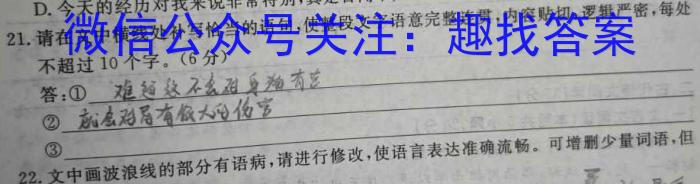 D. 今天的经历对我来说非常特别,
21. 请在文中横线处补写恰当的语句,使整段文字语意完整连贯,内容贴切,逻辑严密,每处
微信公众号关注：趣找答案
不超过10个字。(6分)
答:① 不会对身
② 就会对胃有很大的伤害
③
22. 文中画波浪线的部分有语病,请进行修改,使语言表达准确流畅。可增删少量词语,但